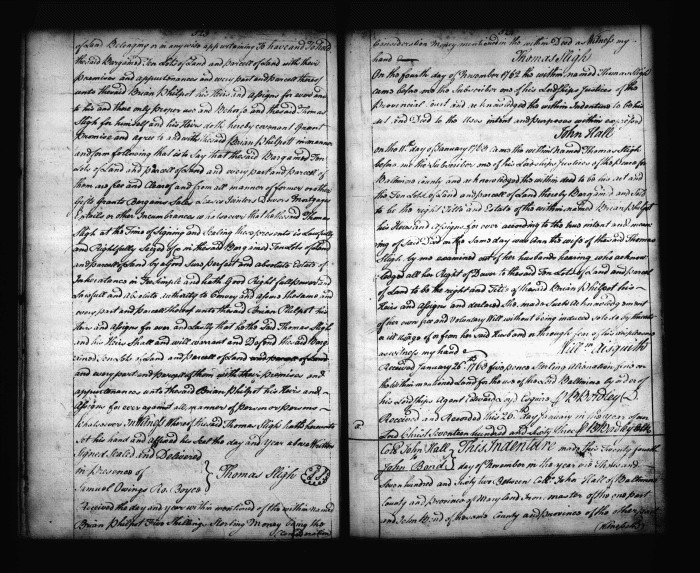 523
of Land Belonging or in any wise appertaining To have and To hold
the said Bargained Ten Lots of Land and parcell of Land with their
premises and appurtenances and every part and parcell thereof
unto the said Brian Philpot his Heirs and Assigns for ever and
to his and their only proper use and Behoof and the said Thomas
Sligh for himself and his Heirs doth hereby covenant Grant
Promise and agree to and with the said Brian Philpot in manner
and form following that is to Say that the said Bargained Ten
Lots of Land and parcell of Land and every part and parcell of
them are free and Clear of and from all manner of former or other
Gifts Grants Bargains Sales Leases Jointures Dowers Mortgages
Estates or other Incumbrances whatsoever that he the said Thomas
Sligh at the Time of Signing and Sealing these presents is Lawfully
and Rightfully Seized of in the said Bargained Ten Lots of Land
and parcell of Land by a Good Sure perfect and absolute Estate of
Inheritance in Fee Simple and hath Good Right full power and
Lawfull and absolute authority to Convey and assure the same and
every part and parcell thereof unto the said Brian Philpot his
Heirs and Assigns for ever and Lastly that he the said Thomas Sligh
and his Heirs Shall and will warrant and Defend the said Barg
ained Ten Lots of Land and parcell of Land
and every part and parcell of them with their Premises and
appurtenances unto the said Brian Philpot his Heirs and
Assigns for ever against all manner of Person or persons
Whatsoever In Witness whereof the said Thomas Sligh hath hereunto
set his hand and affixed his Seal the day and year above Written
Signed Sealed and Delivered
in presence of
Thomas Sligh
Samuel Owings Jno. Boyce
Received the day and year within mentioned of the within named
Brian Philpot Five Shillings Sterling Money being the
Consideration
524
Consideration Money mentioned in the within Deed as Witness my
hand
Thomas Sligh
On the fourth day of November 1762 the within named Thomas Sligh
came before me the Subscriber one of his Lordships Justices of the
Provincial Court and acknowledged the within Indenture to be his
act and Deed to the Uses intent and purposes within expressed
John Hall
On the 11th day of January 1763 Came the within named Thomas Sligh
before me the Subscriber one of his Lordships Justices of the peace for
Baltimore County and acknowledged the within deed to be his act and
the Ten Lots of Land and parcell of Land thereby Bargained and Sold
to be the right Title and Estate of the within named Brian Philpot
his Heirs and Assigns for ever according to the true intent and mean
ing of said Deed on the Same day was Ann the wife of the said Thomas
Sligh by me examined out of her husbands hearing who acknow
ledged all her Right of Dower to the said Ten Lots of Land and parcel
of Land to be the right and Title of the said Brian Philpot his
Heirs and Assigns and declared she made such acknowledgment
of her own free and Voluntary Will without being induced so to do by threats
or ill usage of or from her said Husband or through fear of his displeasure
as witness my hand
Willm Aisquith
Received January 26th 1763 five pence Sterling Alienation fine on
the within mentioned Land for the use of the Lord Baltimore by order of
his Lordships Agent Edward Lloyd Esquire
Received and Recorded this 26th day January in the year of our
Lord Christ Seventeen hundred and Sixty three
Colo. John Hall
To
John Bond
This Indenture made this Twenty fourth
day of November in the year one Thousand
Seven hundred and Sixty two Between Colo. John Hall of Baltimore
County and province of Mary land Iron master of the one part
and John Bond of the same County and province of the other part
Witnesseth